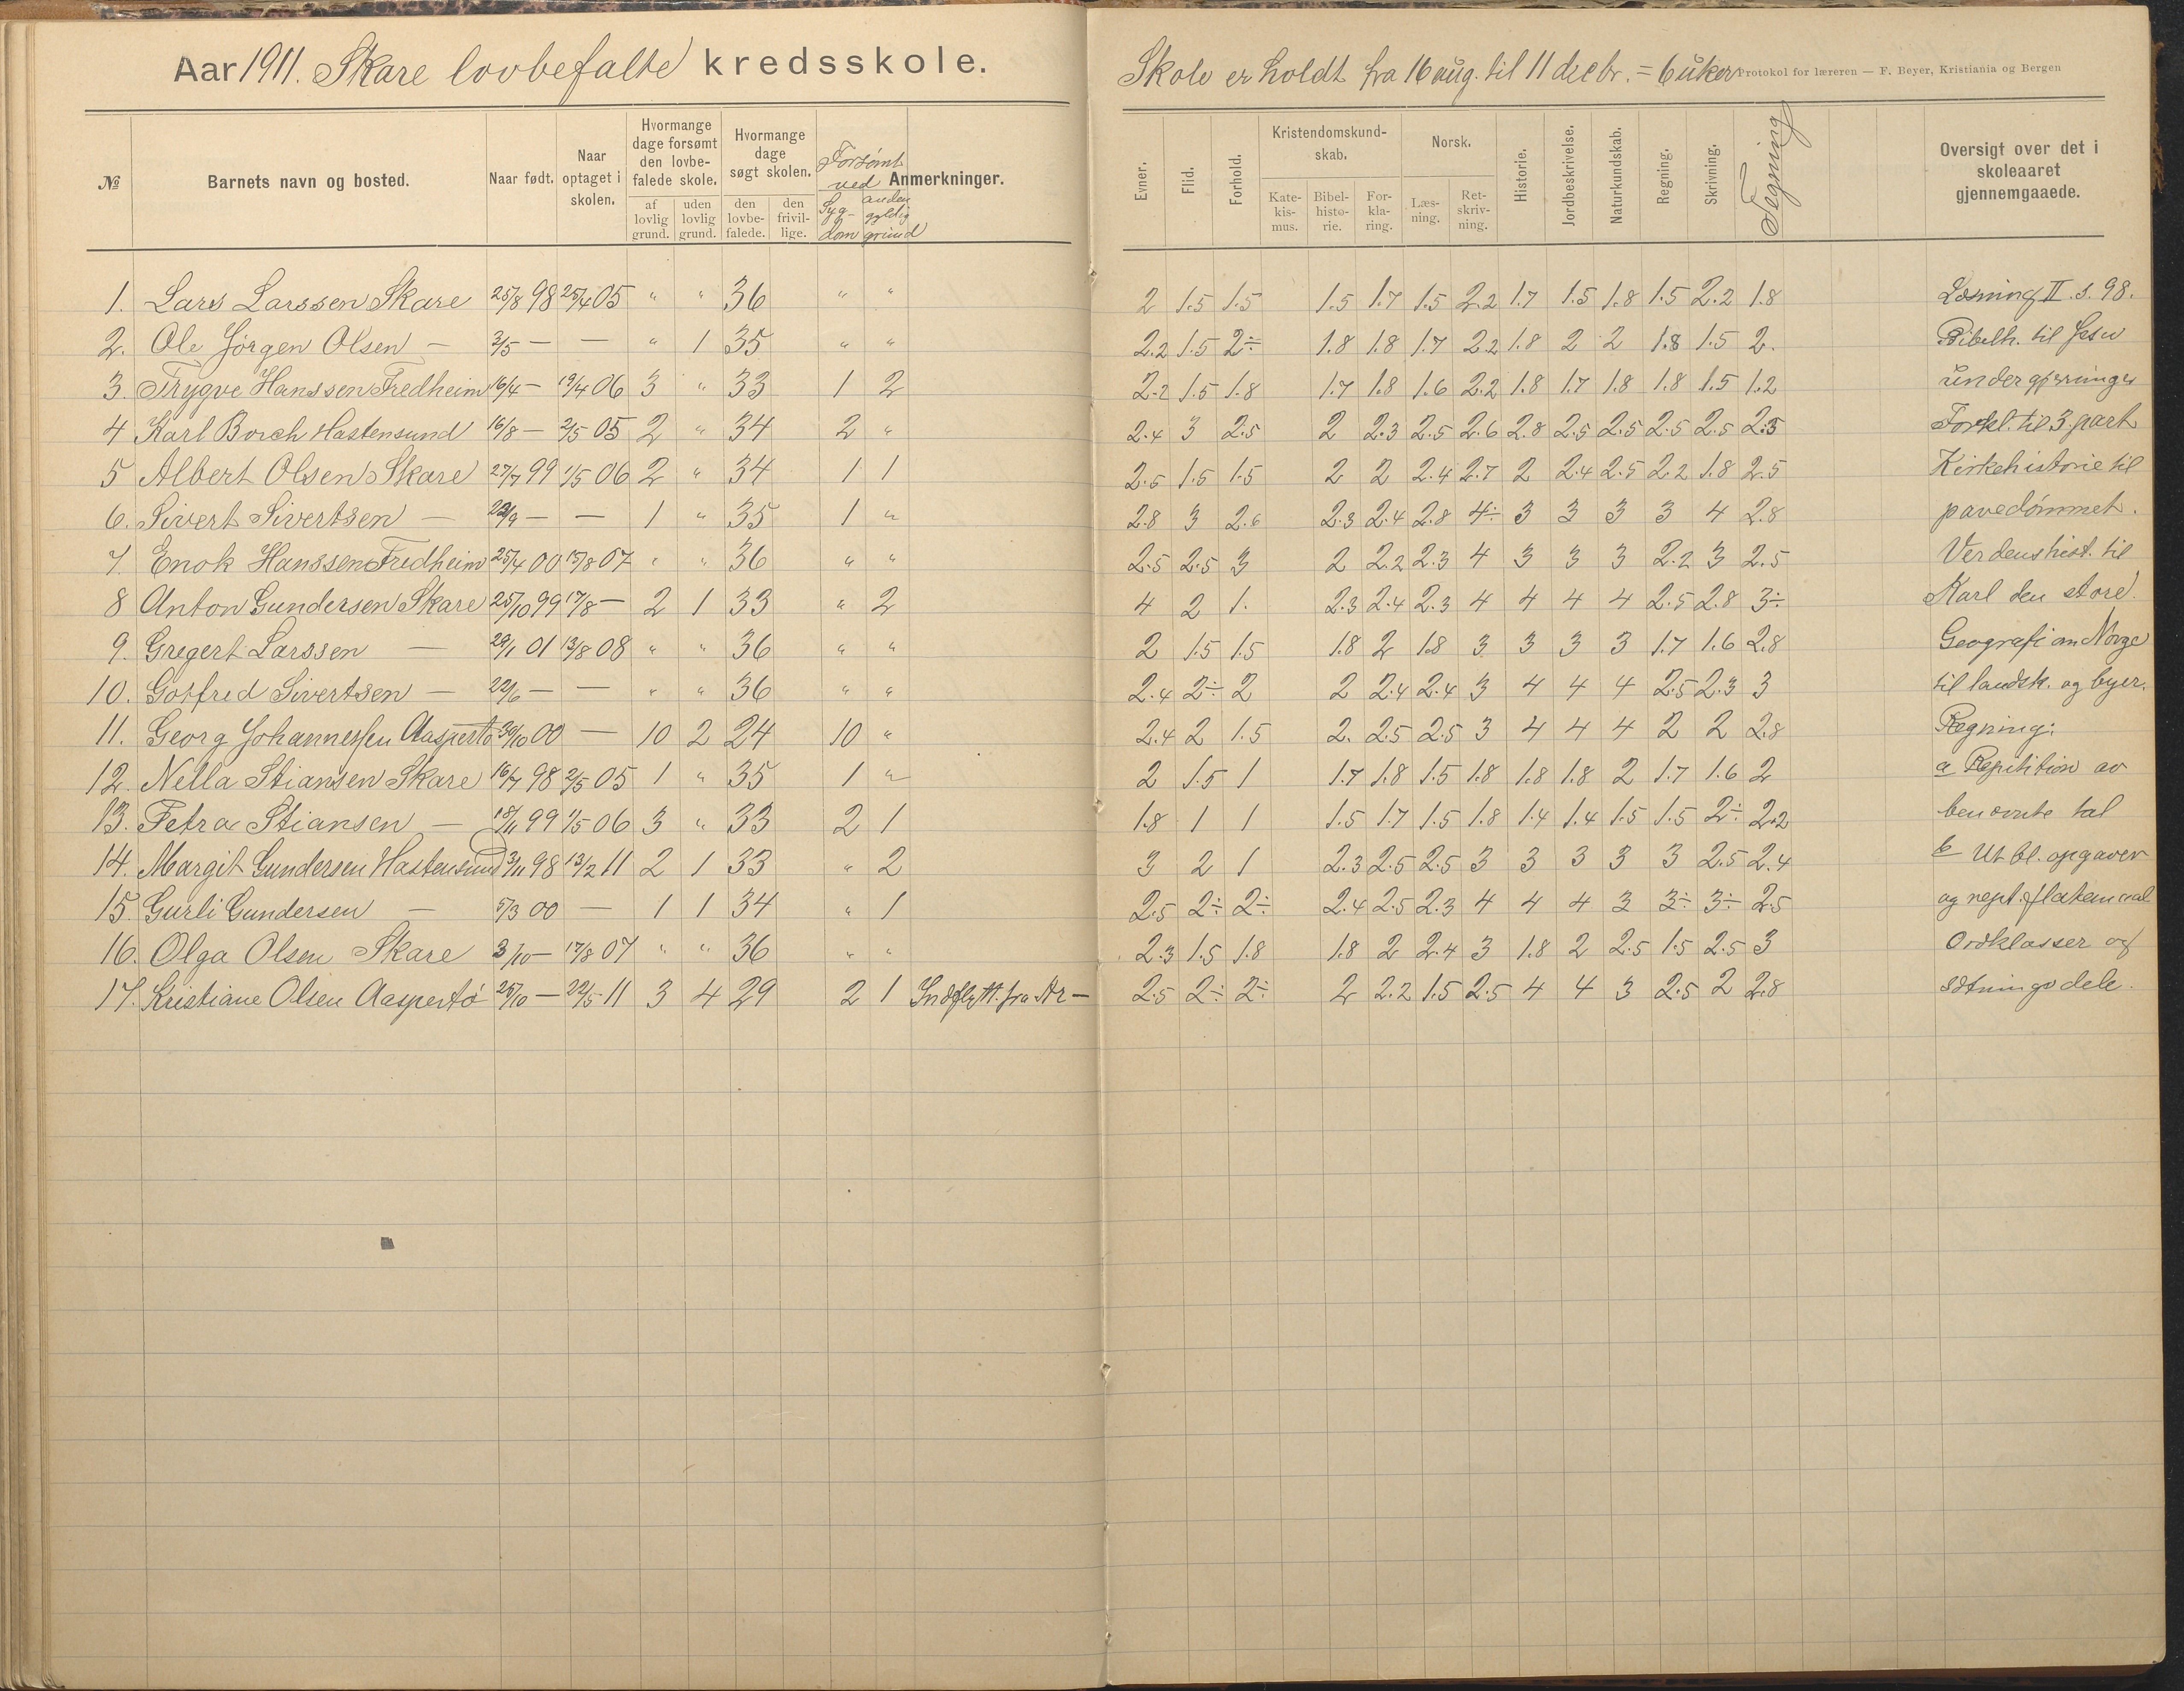 Aar 1911. Skare lovbefalte kredsskole.
№ Barnets navn og bosted. Naar født. Naar optaget i skolen. Hvormange dage forsømt den lovbefalede skole. af lovlig grund. uden lovlig grund. Hvormange dage søgt skolen. den lovbefalede. den frivillige. Forsømt ved Sygdom anden gyldig grund Anmerkninger.
1. Lars Larssen Skare 25/8 98 25/4 05 " " 36 " "
2. Ole Jørgen Olsen — 3/5 — — " 1 35 " "
3. Trygve Hanssen Fredheim 16/4 — 19/4 06 3 " 33 1 2
4 Karl Borch Hastensund 16/8 — 2/5 05 2 " 34 2 "
5 Albert Olsen Skare 27/7 99 1/5 06 2 " 34 1 1
6. Sivert Sivertsen — 22/9 — — 1 " 35 1 "
7. Enok Hanssen Fredheim 25/4 00 15/8 07 " " 36 " "
8 Anton Gundersen Skare 25/10 99 17/8 — 2 1 33 " 2
9. Gregert Larssen — 29/1 01 13/8 08 " " 36 " "
10. Gotfred Sivertsen — 22/6 — — " " 36 " "
11. Georg Johannessen Aaspertø 30/10 00 — 10 2 24 10 "
12. Nella Stiansen Skare 16/7 98 2/5 05 1 " 35 1 "
13. Petra Stiansen — 18/11 99 1/5 06 3 " 33 2 1
14. Margit Gundersen Hastensund 3/11 98 13/2 11 2 1 33 " 2
15. Gurli Gundersen — 5/3 00 — 1 1 34 " 1
16. Olga Olsen Skare 3/10 — 17/8 07 " " 36 " "
17. Kristiane Olsen Aaspertø 25/10 — 22/5 11 3 4 29 2 1 Indflytt. fra Ar —
Skole er holdt fra 16 aug. til 11 decbr. = 6 uker
Protokol for læreren — F. Beyer, Kristiania og Bergen
Evner. Flid. Forhold. Kristendomskundskab. Katekismus. Bibelhistorie. Forklaring. Norsk. Læsning. Retskrivning. Historie. Jordbeskrivelse. Naturkundskab. Regning. Skrivning. Tegning Oversigt over det i skoleaaret gjennemgaaede.
2 1.5 1.5 1.5 1.7 1.5 2.2 1.7 1.5 1.8 1.5 2.2 1.8 Læsning II s. 98.
2.2 1.5 2÷ 1.8 1.8 1.7 2.2 1.8 2 2 1.8 1.5 2. Bibelh. til Jesu
2.2 1.5 1.8 1.7 1.8 1.6 2.2 1.8 1.7 1.8 1.8 1.5 1.2 undergjerninger
2.4 3 2.5 2 2.3 2.5 2.6 2.8 2.5 2.5 2.5 2.5 2.5 Forkl. til 3. part
2.5 1.5 1.5 2 2 2.4 2.7 2 2.4 2.5 2.2 1.8 2.5 Kirkehistorie til
2.8 3 2.6 2.3 2.4 2.8 4÷ 3 3 3 3 4 2.8 pavedømmet.
2.5 2.5 3 2 2.2 2.3 4 3 3 3 2.2 3 2.5 Verdenshist. til
4 2 1. 2.3 2.4 2.3 4 4 4 4 2.5 2.8 3÷ Karl den store.
2 1.5 1.5 1.8 2 1.8 3 3 3 3 1.7 1.6 2.8 Geografi om Norge
2.4 2÷ 2 2 2.4 2.4 3 4 4 4 2.5 2.3 3 til landsk. og byer.
2.4 2 1.5 2. 2.5 2.5 3 4 4 4 2 2 2.8 Regning:
2 1.5 1 1.7 1.8 1.5 1.8 1.8 1.8 2 1.7 1.6 2 a Repitition av
1.8 1 1 1.5 1.7 1.5 1.8 1.4 1.4 1.5 1.5 2÷ 2.2 benævnte tal
3 2 1 2.3 2.5 2.5 3 3 3 3 3 2.5 2.4 b Ut bl. opgaver
2.5 2÷ 2÷ 2.4 2.5 2.3 4 4 4 3 3÷ 3÷ 2.5 og rept. flatemaal
2.3 1.5 1.8 1.8 2 2.4 3 1.8 2 2.5 1.5 2.5 3 Ordklasser og
2.5 2÷ 2÷ 2 2.2 1.5 2.5 4 4 3 2.5 2 2.8 sætningsdele.